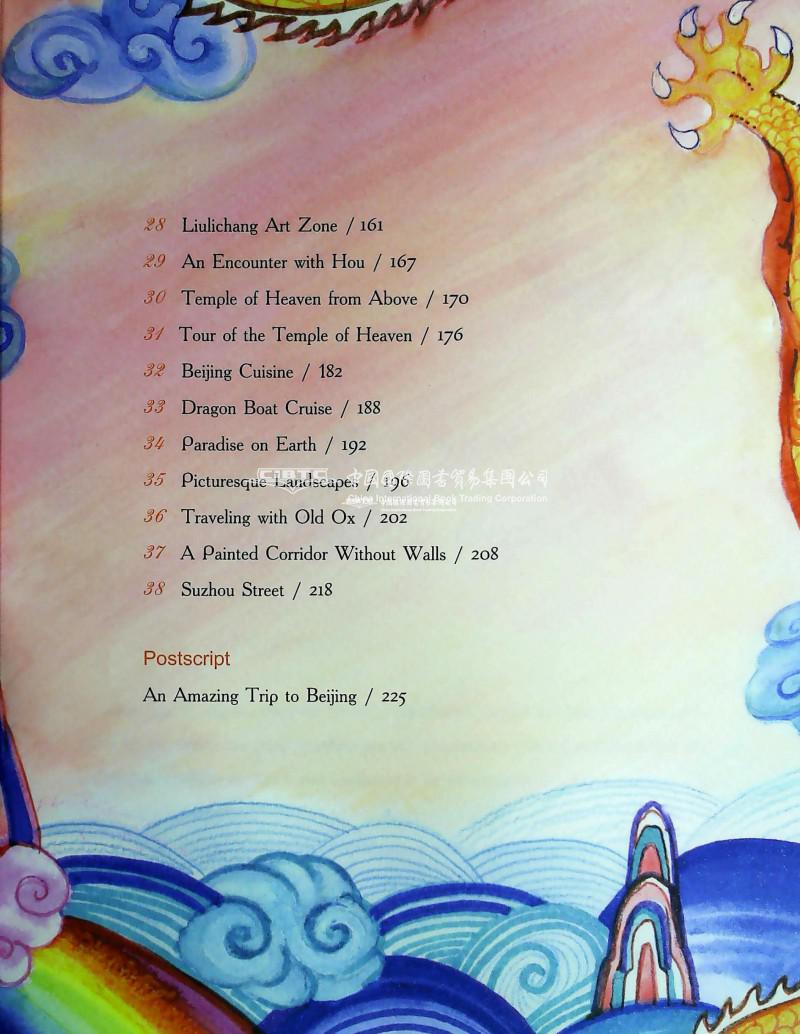 28 Liulichang Art Zone / 161
29 An Encounter with Hou / 167
30 Temple of Heaven from Above / 170
31 Tour of the Temple of Heaven / 176
32 Beijing Cuisine / 182
33 Dragon Boat Cruise / 188
34 Paradise on Earth / 192
35 Picturesque Landscapes / 196
CIBTC 中国国际图书贸易集团公司
China International Book Trading Corporation
36 Traveling with Old Ox / 202
37 A Painted Corridor Without Walls / 208
38 Suzhou Street / 218
Postscript
An Amazing Trip to Beijing / 225